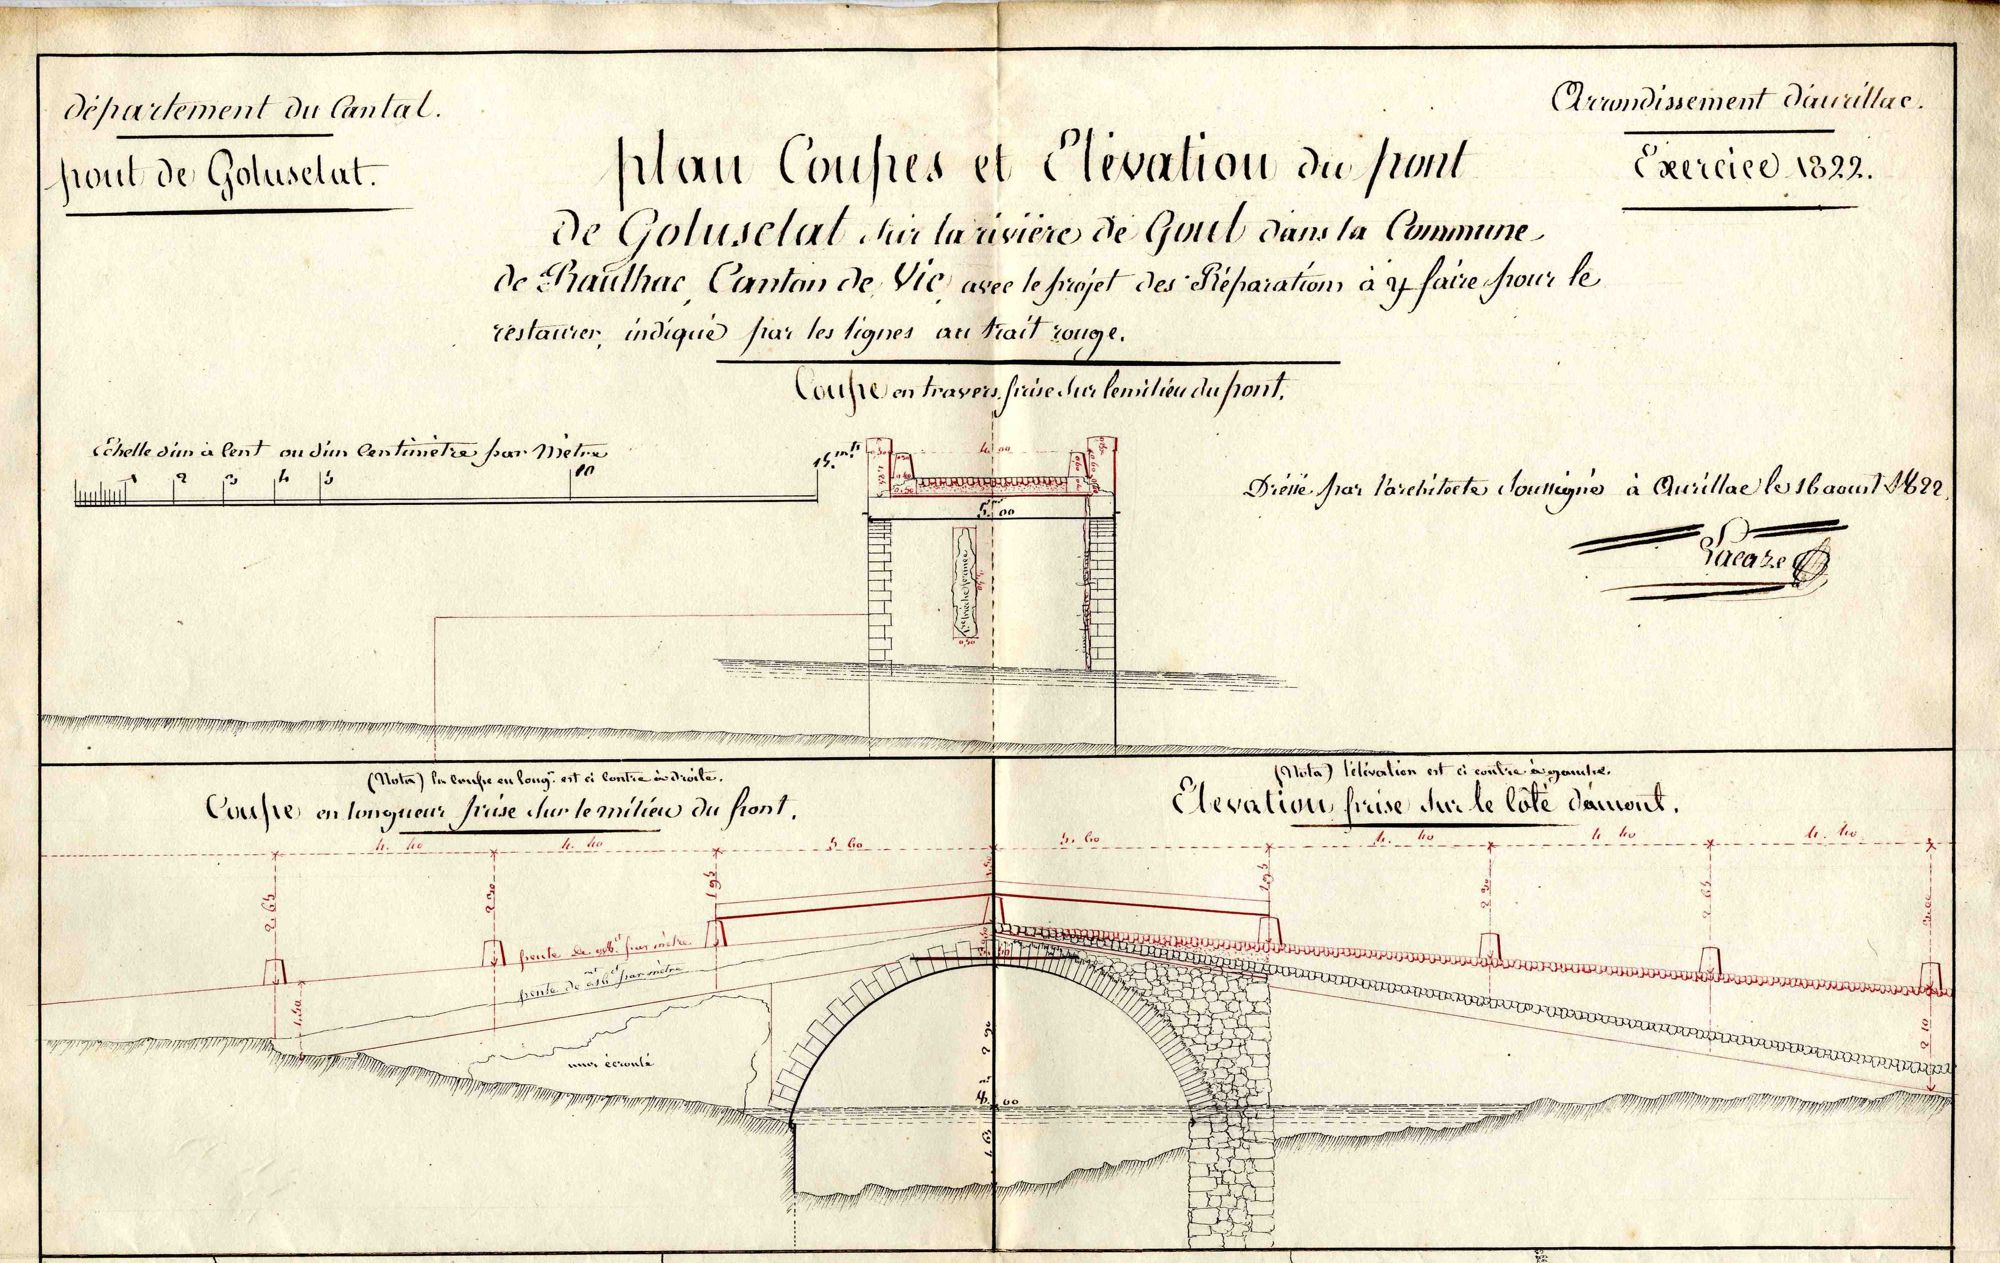 département du Cantal.
pont de Goluselat.
Arrondissement d'aurillac.
Exercice 1822.
plan Coupes et Elévation du pont
de Goluselat sur la rivière de Goul dans la Commune
de Raulhac, Canton de Vic, avec le projet des Réparations à y faire pour le
restaurer, indiqué par les lignes au trait rouge.
Coupe en travers prise sur le milieu du pont.
Echelle d'un à Cent ou d'un Centimètre par Mètre
1 2 3 4 5 10 15.mt
4. 00
5. 00
0,50
Dressé par l'architecte soussigné à Aurillac le 16 aoust 1822.
Lacaze
(Nota) la coupe en longr. est ci contre à droite.
Coupe en longueur prise sur le milieu du pont.
(Nota) l'élévation est ci contre à gauche.
Elévation prise sur le côté d'amont.
4. 40 4. 40 5 60 5. 60 4. 40 4. 40 4. 40
2. 65 2 30 1 95 1 95 2. 30 2 65
pente de
par mètre
pente de
par mètre
mur écroulé
2 90
4.m 60
1. 65
2 10